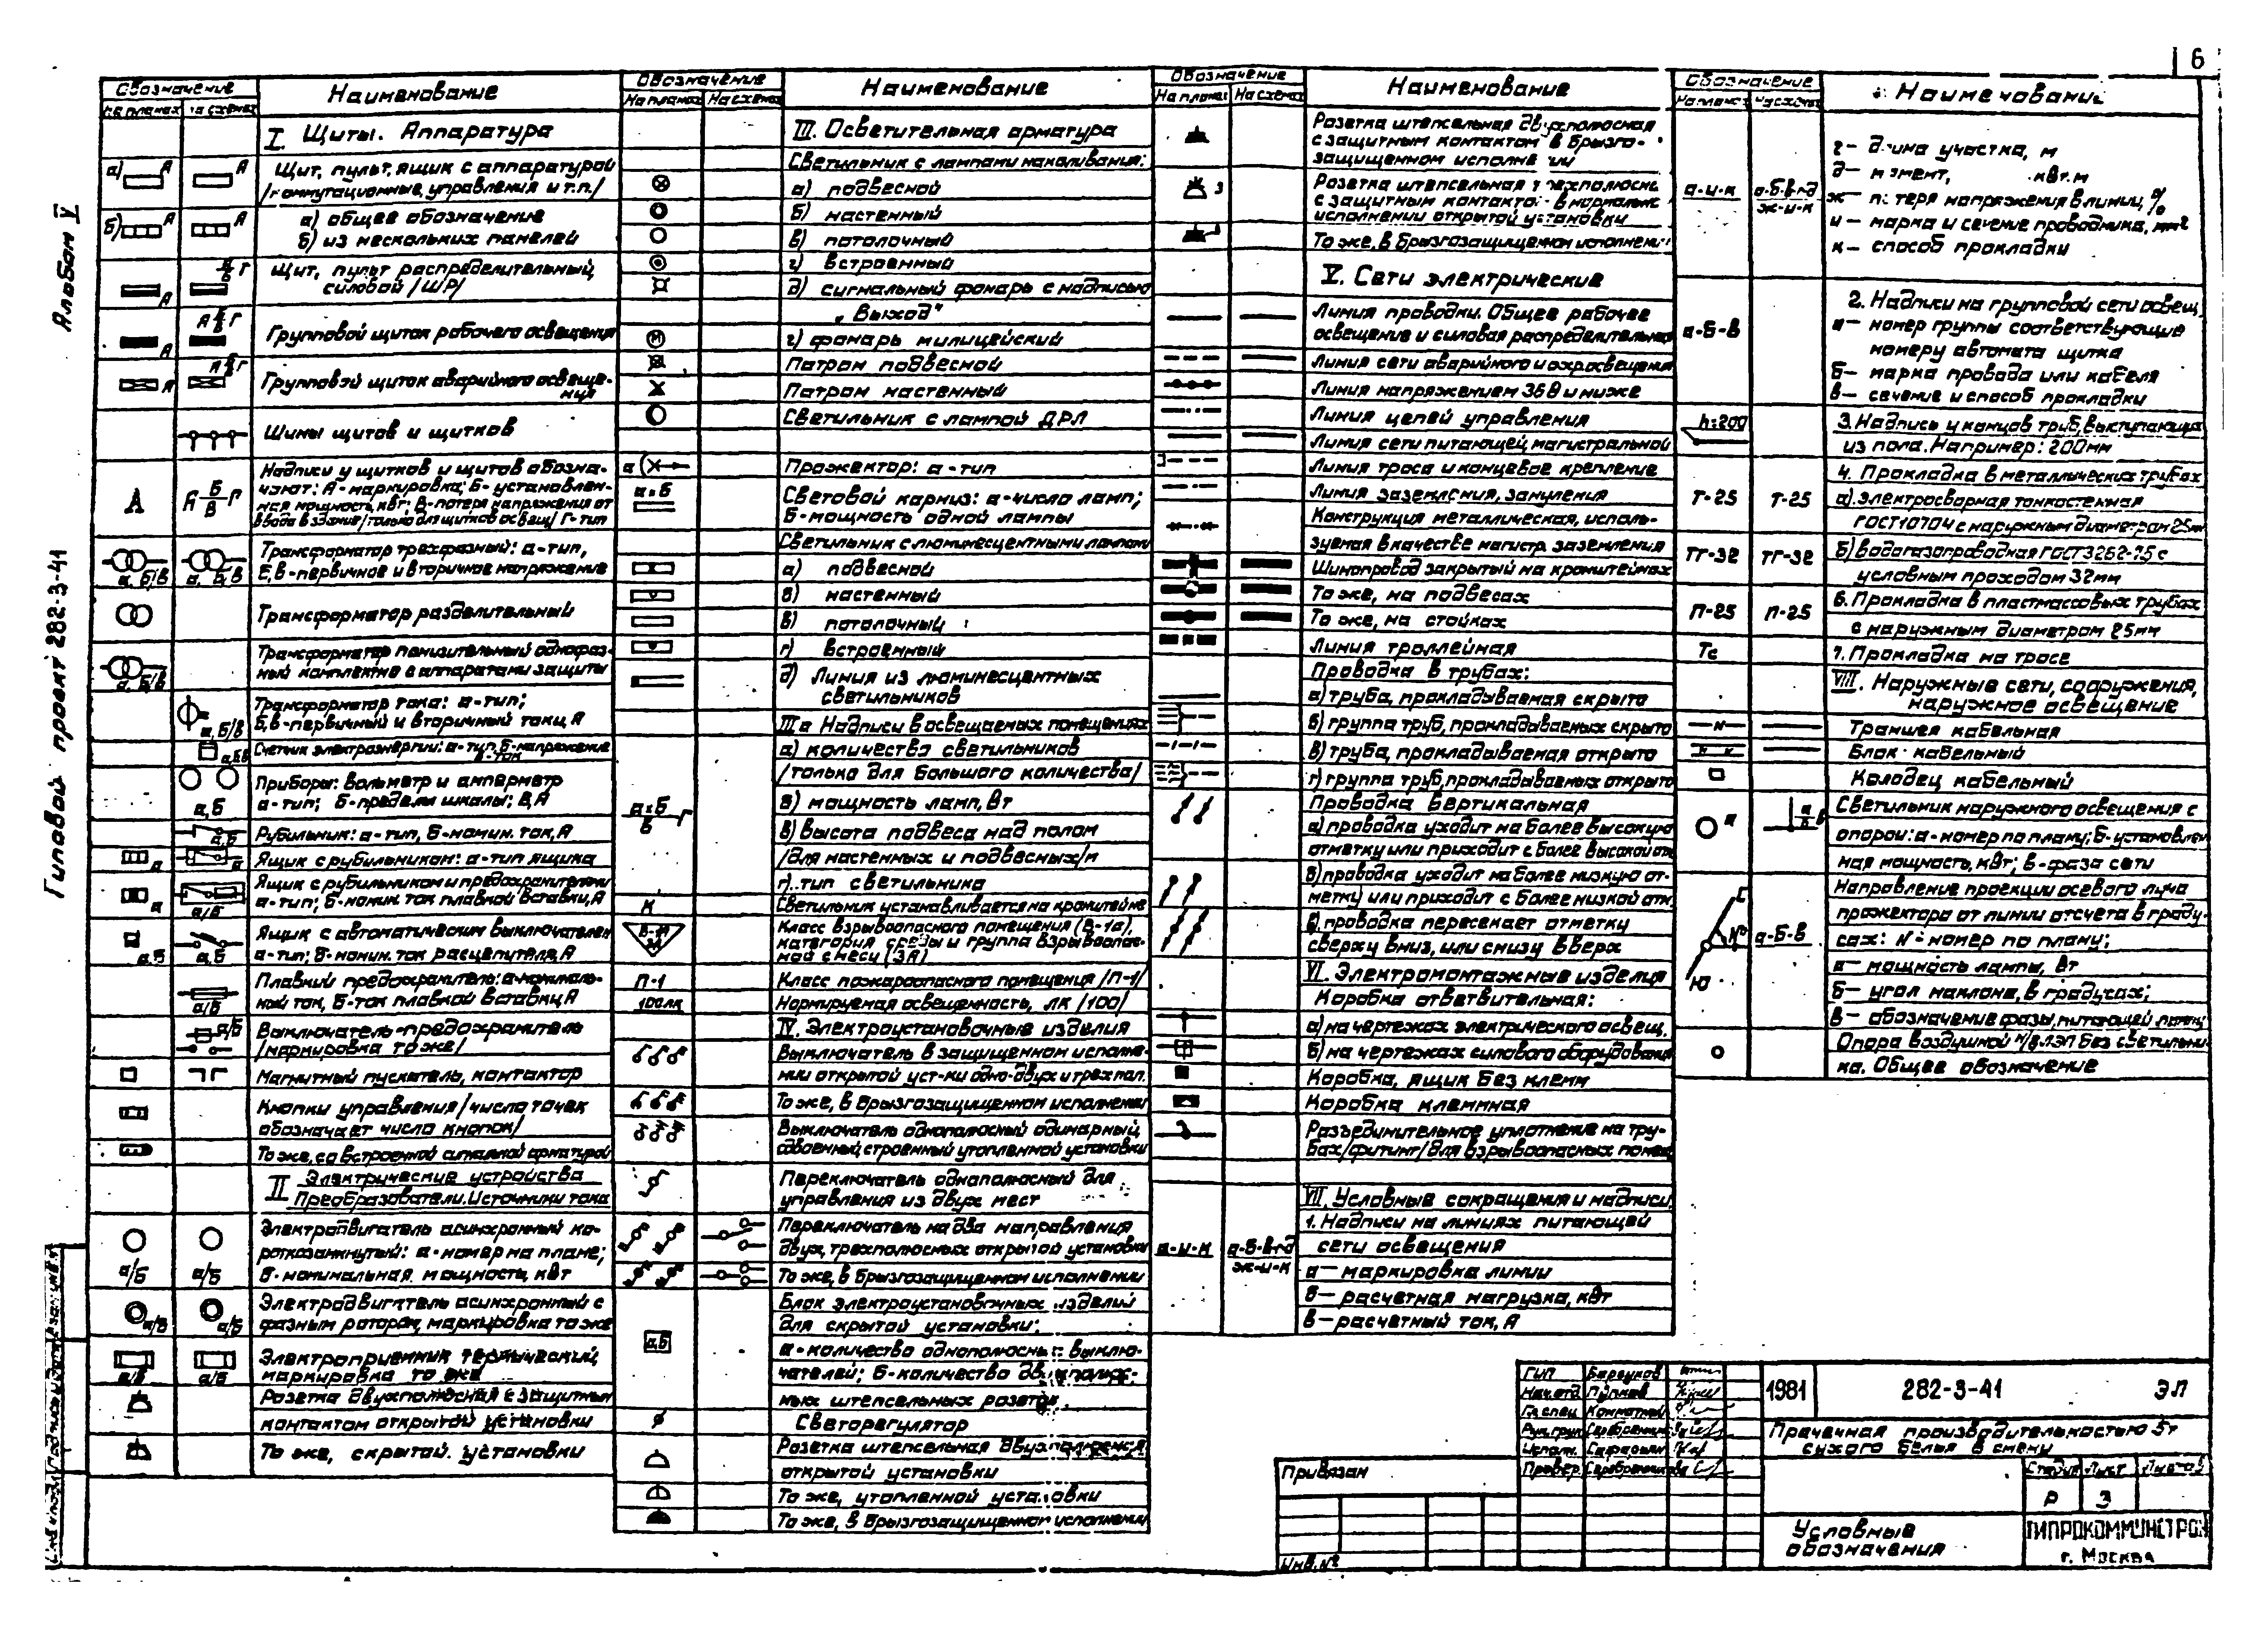 6
Альбом V
Типовой проект 282-3-41
Обозначение
На планах На схемах
Наименование
I. Щиты. Аппаратура
а) А А
Щит, пульт, ящик с аппаратурой
/коммутационные, управления и т.п./
б) А А
а) общее обозначение
б) из нескольких панелей
Щит, пульт распределительный,
силовой /ШР/
Групповой щиток рабочего освещения
Групповой щиток аварийного освеще-
ния
Шины щитов и щитков
А А Б/В Г
Надписи у щитков и щитов обозна-
чают: А-маркировка; Б-установлен-
ная мощность, кВт; В-потеря напряжения от
ввода в здание/только для щитков освещ/ Г-тип
Трансформатор трехфазный: а-тип,
Б,в-первичное и вторичное напряжение
а, Б/В а, Б/В
Трансформатор разделительный
Трансформатор понизительный однофаз-
ный комплектно с аппаратами защиты
а, Б/В
Трансформатор тока: а-тип;
Б,в-первичный и вторичный токи, А
а, Б/В
Счетчик электроэнергии: а-тип, Б-напряжение
в-ток
Приборы: вольметр и амперметр
а-тип; Б-пределы шкалы; В,А
а,Б
Рубильник: а-тип, Б-номин. ток, А
а,Б
Ящик с рубильником: а-тип ящика
а а
Ящик с рубильником и предохранителями
а-тип; Б-номин. ток плавкой вставки, А
а а/Б
Ящик с автоматическим выключателем
а-тип; Б-номин. ток расцепителя, А
а,Б а,Б
Плавкий предохранитель: а-номиналь-
ный ток, Б-ток плавкой вставки, А
а/Б
Выключатель-предохранитель
/маркировка то же/
а/Б
Магнитный пускатель, контактор
Кнопки управления/число точек
обозначает число кнопок/
То же, со встроенной сигнальной арматурой
II Электрические устройства
Преобразователи. Источники тока
Электродвигатель асинхронный ко-
роткозамкнутый: а-номер на плане;
Б-номинальная мощность, кВт
а/Б а/Б
Электродвигатель асинхронный с
фазным ротором, маркировка то же
а/Б а/Б
Электроприемник термический,
маркировка то же
а/Б а/Б
Розетка двухполюсная с защитным
контактом открытой установки
То же, скрытой установки
Обозначение
На планах На схемах
Наименование
III. Осветительная арматура
Светильник с лампами накаливания:
а) подвесной
б) настенный
в) потолочный
г) встроенный
д) сигнальный фонарь с надписью
„Выход"
г) фонарь милицейский
Патрон подвесной
Патрон настенный
Светильник с лампой ДРЛ
Прожектор: а-тип
а×Б
Световой карниз: а-число ламп;
Б-мощность одной лампы
Светильник с люминесцентными лампами
а) подвесной
б) настенный
в) потолочный
г) встроенный
д) Линия из люминесцентных
светильников
IIIа Надписи в освещаемых помещениях
а) количество светильников
/только для большого количества/
а×Б/в Г
б) мощность ламп, Вт
в) высота подвеса над полом
/для настенных и подвесных/м
г) тип светильника
К
Светильник устанавливается на кронштейне
Класс взрывоопасного помещения (В-1а),
категория среды и группа взрывоопас-
ной смеси (3А)
П-1
Класс пожароопасного помещения /П-1/
100лк
Нормируемая освещенность, лк /100/
IV. Электроустановочные изделия
Выключатель в защищенном исполне-
нии открытой уст-ки одно-двух и трех пол.
То же, в брызгозащищенном исполнении
Выключатель однополюсный одинарный,
сдвоенный, строенный утопленной установки
Переключатель однополюсный для
управления из двух мест
Переключатель на два направления,
двух, трехполюсных открытой установки
То же, в брызгозащищенном исполнении
Блок электроустановочных изделий
для скрытой установки:
а,Б
а-количество однополюсных выклю-
чателей; Б-количество двухполюс-
ных штепсельных розеток.
Светорегулятор
Розетка штепсельная двухполюсная
открытой установки
То же, утопленной установки
То же, в брызгозащищенном исполнении
Обозначение
На планах На схемах
Наименование
Розетка штепсельная двухполюсная
с защитным контактом в брызго-
защищенном исполнении
3
Розетка штепсельная трехполюсн.
с защитным контактом в нормальн.
исполнении открытой установки
То же, в брызгозащищенном исполнении
V. Сети электрические
Линия проводки. Общее рабочее
освещение и силовая распределительная
Линия сети аварийного и охр. освещения
Линия напряжением 36В и ниже
Линия цепей управления
Линия сети питающей, магистральной
Линия троса и концевое крепление
Линия заземления, зануления
Конструкция металлическая, исполь-
зуемая в качестве магистр. заземления
Шинопровод закрытый на кронштейнах
То же, на подвесах
То же, на стойках
Линия троллейная
Проводка в трубах:
а) труба, прокладываемая скрыто
б) группа труб, прокладываемых скрыто
в) труба, прокладываемая открыто
г) группа труб, прокладываемых открыто
Проводка вертикальная
а) проводка уходит на более высокую
отметку или приходит с более высокой отм.
б) проводка уходит на более низкую от-
метку или приходит с более низкой отм.
в) проводка пересекает отметку
сверху вниз, или снизу вверх
VI. Электромонтажные изделия
Коробка ответвительная:
а) на чертежах электрического освещ.
б) на чертежах силового оборудования
Коробка, ящик без клемм
Коробка клеммная
Разъединительное уплотнение на тру-
бах/фитинг/для взрывоопасных помещ.
VII. Условные сокращения и надписи.
1. Надписи на линиях питающей
сети освещения
а-и-к а-б-в-г-д/ж-и-к
а— маркировка линии
б— расчетная нагрузка, кВт
в— расчетный ток, А
Обозначение
На планах На схемах
Наименование
г— длина участка, м
д— момент, кВт.м
а-и-к а-б-в-г-д/ж-и-к
ж— потеря напряжения в линии, %
и— марка и сечение проводника, мм²
к— способ прокладки
2. Надписи на групповой сети освещ.
а-б-в
а— номер группы соответствующие
номеру автомата щитка
б— марка провода или кабеля
в— сечение и способ прокладки
h=200
3. Надпись у концов труб, выступающих
из пола. Например: 200мм
4. Прокладка в металлических трубах
Т-25 Т-25
а) электросварная тонкостенная
ГОСТ10704 с наружным диаметром 25мм
ТГ-32 ТГ-32
б) водогазопроводная ГОСТ3262-75 с
условным проходом 32мм
П-25 П-25
6. Прокладка в пластмассовых трубах
с наружным диаметром 25мм
Тс
7. Прокладка на тросе
VIII. Наружные сети, сооружения,
наружное освещение
Траншея кабельная
Блок кабельный
Колодец кабельный
Светильник наружного освещения с
опорой: а-номер по плану; Б-установлен-
ная мощность, кВт; в-фаза сети
Направление проекции осевого луча
прожектора от линии отсчета в граду-
сах: N°- номер по плану;
С N° Ю а-б-в
а— мощность лампы, Вт
б— угол наклона, в градусах;
в— обозначение фазы, питающей лампу
Опора воздушной н/в ЛЭП без светильни-
ка. Общее обозначение
ГИП
Нач.отд Пупков
Гл.спец
Рук.груп
Исполн.
Провер.
1981 282-3-41 ЭЛ
Прачечная производительностью 5т
сухого белья в смену
Привязан
Инв.№
Стадия Лист Листов
Р 3
Условные
обозначения
ГИПРОКОММУНСТРОЙ
г. Москва